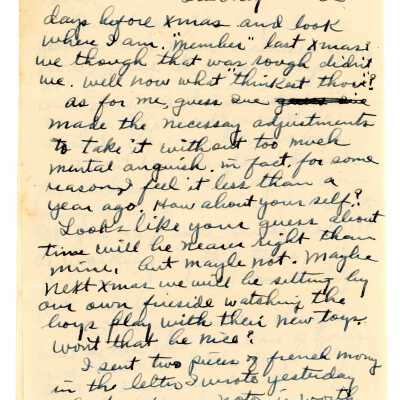 days before Xmas and look
where I am. "Member" last Xmas?
we though that was rough didn't
we. Well now what "thinkest thou"?
as for me, guess I've
made the necessay adjustments
to take it without too much
mental anguish. in fact, for some
reason, I feel it less than a
year ago. How about your self?
Looks like your guess about
time will be nearer right than
mine, but maybe not. Maybe
next Xmas we will be sitting by
our own fireside watching the
boys play with their new toys.
Won't that be nice?
I sent two pieces of french mony
in the letter I wrote yesterday